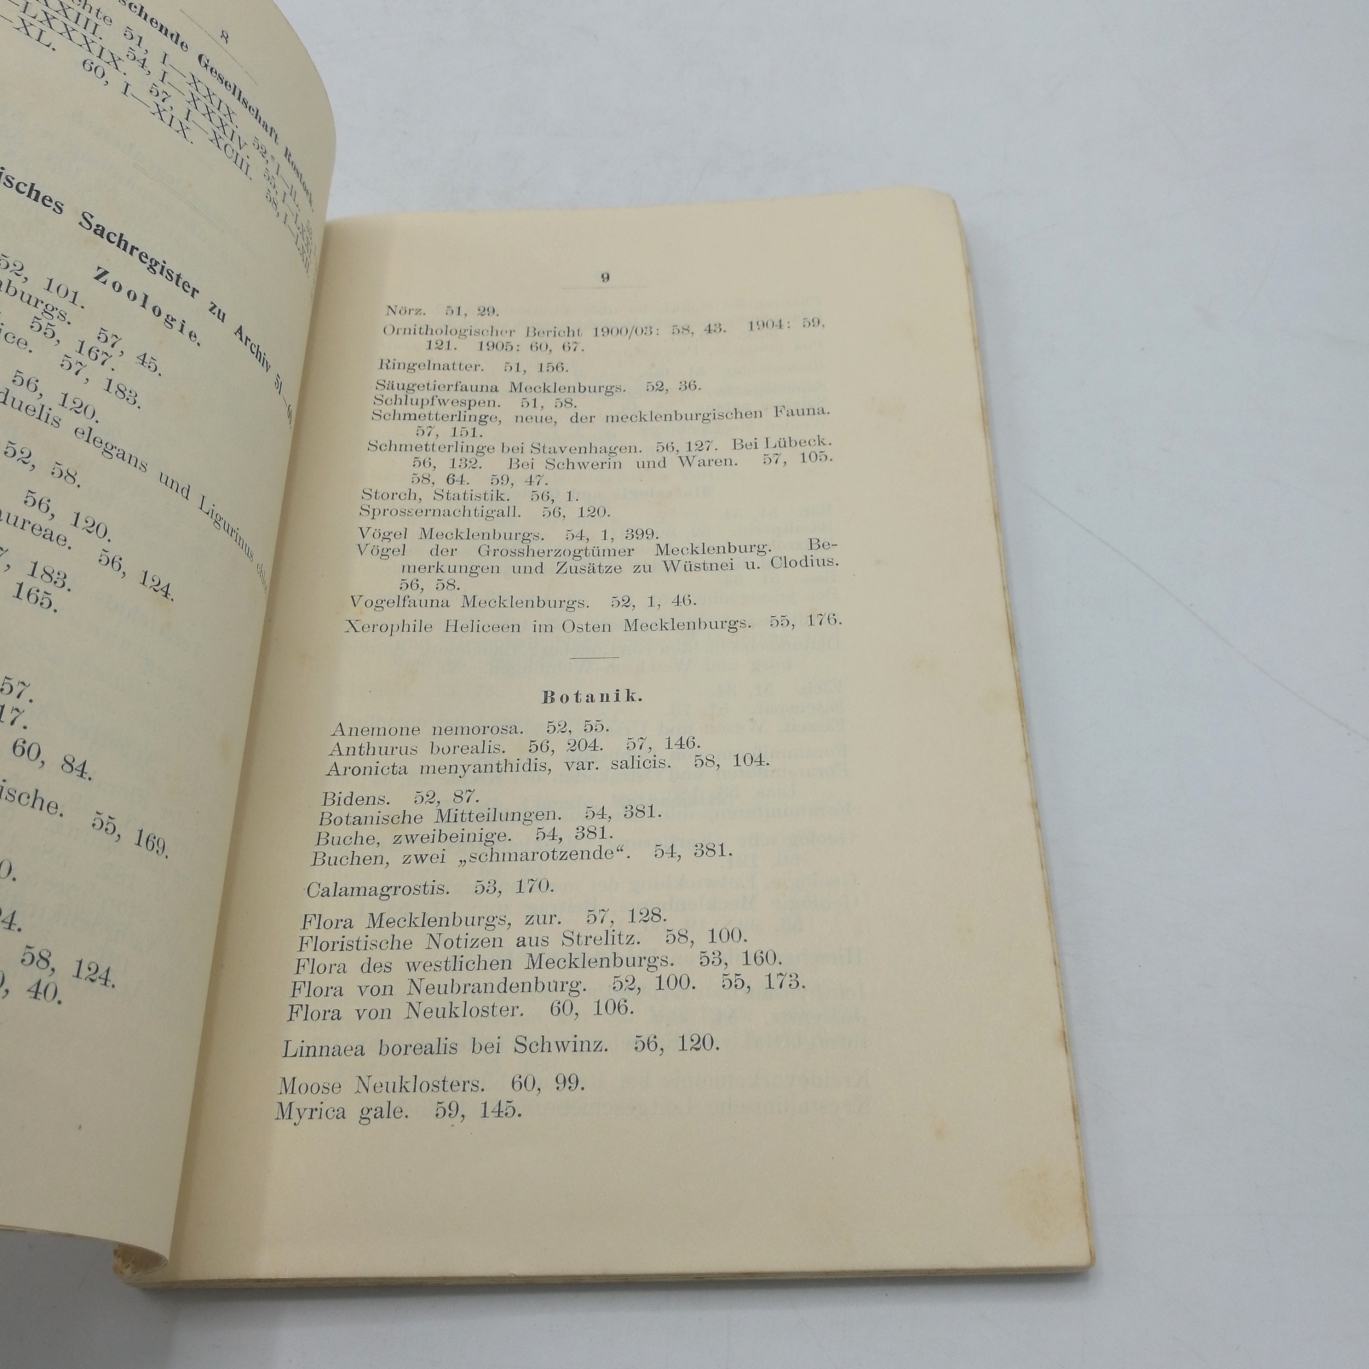 8
schende Gesellschaft Rostock.
51, I—XXIX. 52, I—
XXIII. 54, I—XXXIV. 55, I—
LXXXIX. 57, I—XCIII. 58, I—
XL. 60, I—XIX.
isches Sachregister zu Archiv 51—
Zoologie.
52, 101.
nburgs. 57, 45.
55, 167.
ice. 57, 183.
56, 120.
duelis elegans und Ligurinus
52, 58.
56, 120.
aureae. 56, 124.
7, 183.
165.
57.
17.
60, 84.
ische. 55, 169.
0.
24.
58, 124.
0, 40.
9
Nörz. 51, 29.
Ornithologischer Bericht 1900/03: 58, 43. 1904: 59,
121. 1905: 60, 67.
Ringelnatter. 51, 156.
Säugetierfauna Mecklenburgs. 52, 36.
Schlupfwespen. 51, 58.
Schmetterlinge, neue, der mecklenburgischen Fauna.
57, 151.
Schmetterlinge bei Stavenhagen. 56, 127. Bei Lübeck.
56, 132. Bei Schwerin und Waren. 57, 105.
58, 64. 59, 47.
Storch, Statistik. 56, 1.
Sprossernachtigall. 56, 120.
Vögel Mecklenburgs. 54, 1, 399.
Vögel der Grossherzogtümer Mecklenburg. Be-
merkungen und Zusätze zu Wüstnei u. Clodius.
56, 58.
Vogelfauna Mecklenburgs. 52, 1, 46.
Xerophile Heliceen im Osten Mecklenburgs. 55, 176.
Botanik.
Anemone nemorosa. 52, 55.
Anthurus borealis. 56, 204. 57, 146.
Aronicta menyanthidis, var. salicis. 58, 104.
Bidens. 52, 87.
Botanische Mitteilungen. 54, 381.
Buche, zweibeinige. 54, 381.
Buchen, zwei „schmarotzende“. 54, 381.
Calamagrostis. 53, 170.
Flora Mecklenburgs, zur. 57, 128.
Floristische Notizen aus Strelitz. 58, 100.
Flora des westlichen Mecklenburgs. 53, 160.
Flora von Neubrandenburg. 52, 100. 55, 173.
Flora von Neukloster. 60, 106.
Linnaea borealis bei Schwinz. 56, 120.
Moose Neuklosters. 60, 99.
Myrica gale. 59, 145.